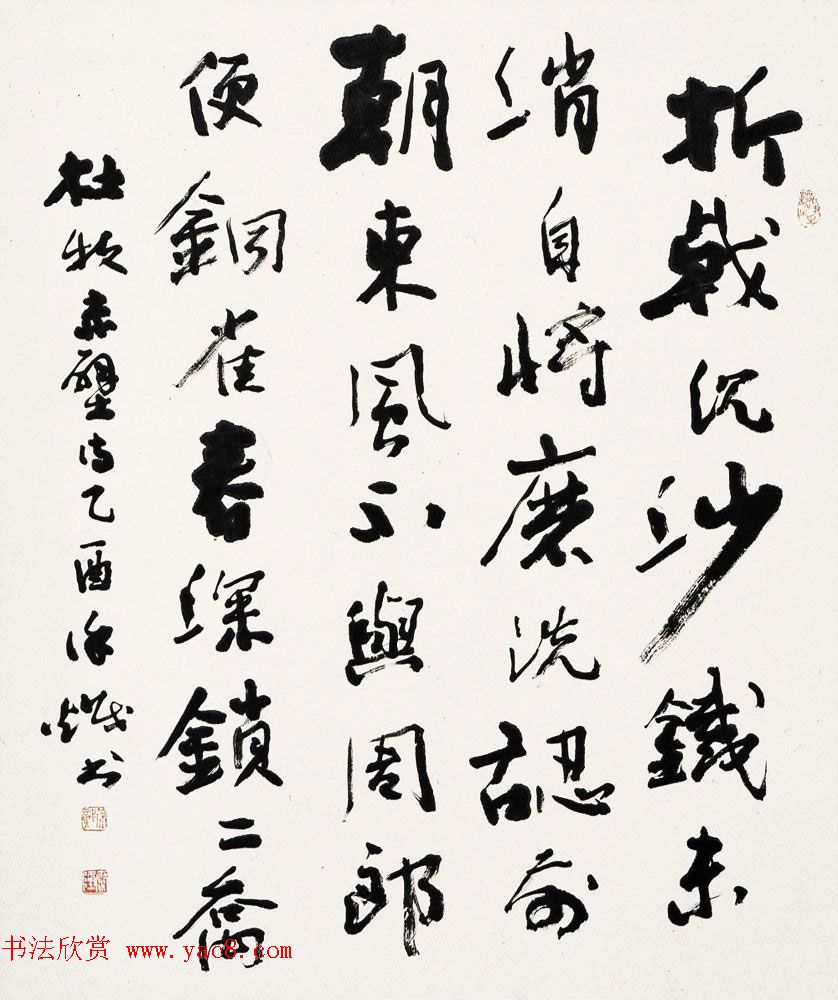 折戟沉沙鐵未
綃自將磨洗認前
朝東風不與周郎
便銅雀春深鎖二喬
杜牧赤壁詩乙酉徐熾書
书法欣赏 www.yac8.com